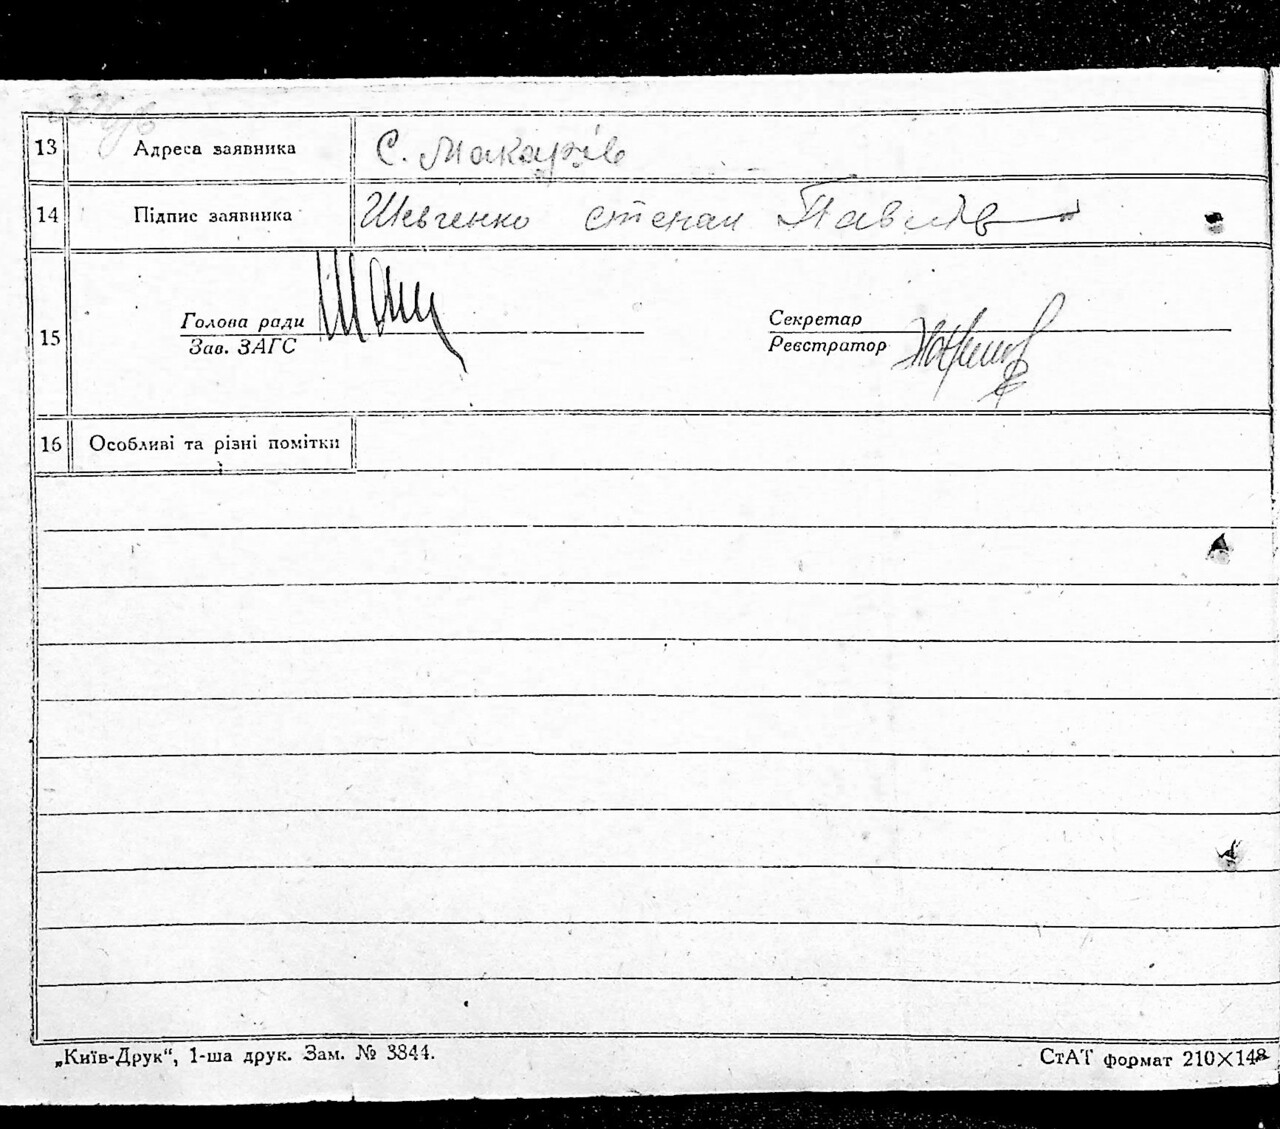 13 Адреса заявника С. Макарів
14 Підпис заявника Шевченко степан
15 Голова ради Секретар
Зав. ЗАГС Реєстратор
16 Особливі та різні помітки
„Київ-Друк“, 1-ша друк. Зам. № 3344. СтАТ формат 210×148